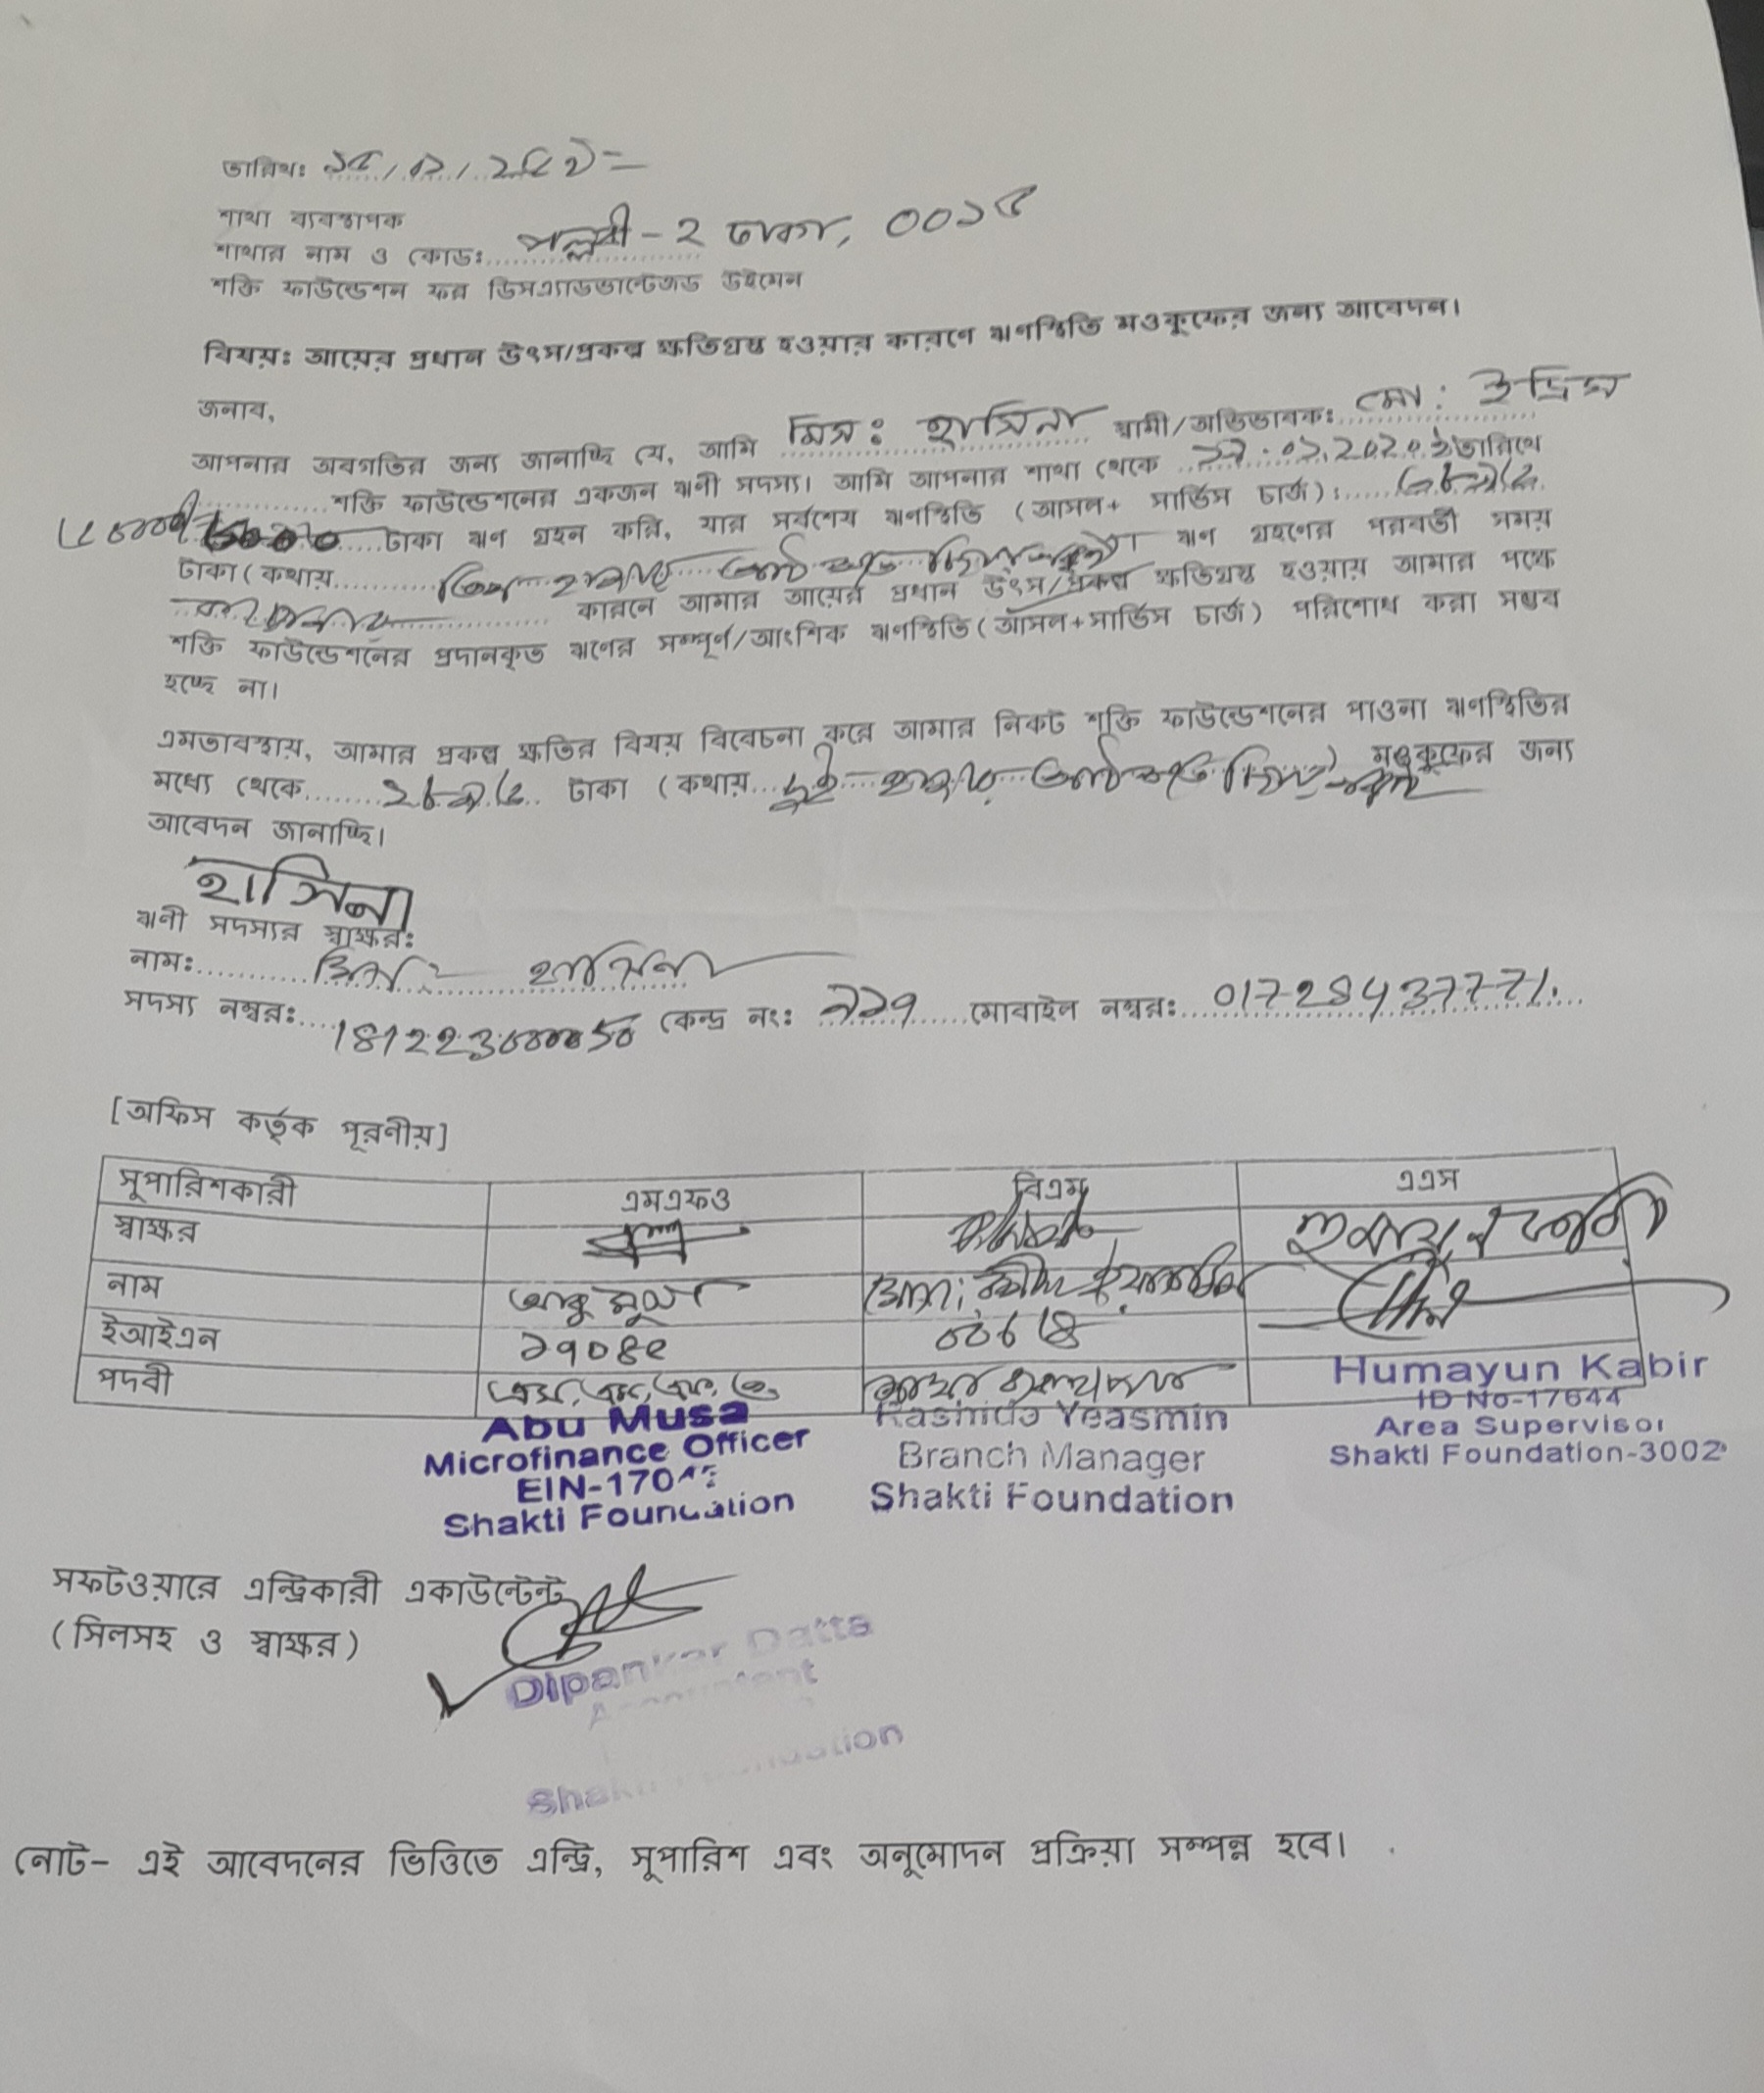 তারিখঃ
শাখা ব্যবস্থাপক
শাখার নাম ও কোডঃ পল্লবী-২ ঢাকা, ০০১৫
শক্তি ফাউন্ডেশন ফর ডিসএ্যাডভান্টেজড উইমেন
বিষয়ঃ আয়ের প্রধান উৎস/প্রকল্প ক্ষতিগ্রস্ত হওয়ার কারণে ঋণস্থিতি মওকুফের জন্য আবেদন।
জনাব,
আপনার অবগতির জন্য জানাচ্ছি যে, আমি মিস: হাসিনা স্বামী/অভিভাবকঃ মো: ইদ্রিস
শক্তি ফাউন্ডেশনের একজন ঋণী সদস্য। আমি আপনার শাখা থেকে তারিখে
টাকা ঋণ গ্রহন করি, যার সর্বশেষ ঋণস্থিতি (আসল+ সার্ভিস চার্জ):
টাকা (কথায় তিন হাজার আটশত ঋণ গ্রহণের পরবর্তী সময়
কারনে আমার আয়ের প্রধান উৎস/প্রকল্প ক্ষতিগ্রস্ত হওয়ায় আমার পক্ষে
শক্তি ফাউন্ডেশনের প্রদানকৃত ঋণের সম্পূর্ণ/আংশিক ঋণস্থিতি(আসল+সার্ভিস চার্জ) পরিশোধ করা সম্ভব
হচ্ছে না।
এমতাবস্থায়, আমার প্রকল্প ক্ষতির বিষয় বিবেচনা করে আমার নিকট শক্তি ফাউন্ডেশনের পাওনা ঋণস্থিতির
মধ্যে থেকে টাকা (কথায় দুই হাজার আটশত মওকুফের জন্য
আবেদন জানাচ্ছি।
হাসিনা
ঋণী সদস্যর স্বাক্ষর:
নামঃ হাসিনা
সদস্য নম্বরঃ কেন্দ্র নংঃ মোবাইল নম্বরঃ
[অফিস কর্তৃক পূরণীয়]
সুপারিশকারী এমএফও বিএম এএস
স্বাক্ষর
নাম আবু মুসা
ইআইএন ১৭০৪৫
পদবী
Abu Musa
Microfinance Officer
Shakti Foundation
Rashida Yeasmin
Branch Manager
Shakti Foundation
Humayun Kabir
ID No-17644
Area Supervisor
Shakti Foundation-3002
সফটওয়ারে এন্ট্রিকারী একাউন্টেন্ট
(সিলসহ ও স্বাক্ষর)
Dipankar Datta
Accountant
Shakti Foundation
নোট- এই আবেদনের ভিত্তিতে এন্ট্রি, সুপারিশ এবং অনুমোদন প্রক্রিয়া সম্পন্ন হবে।